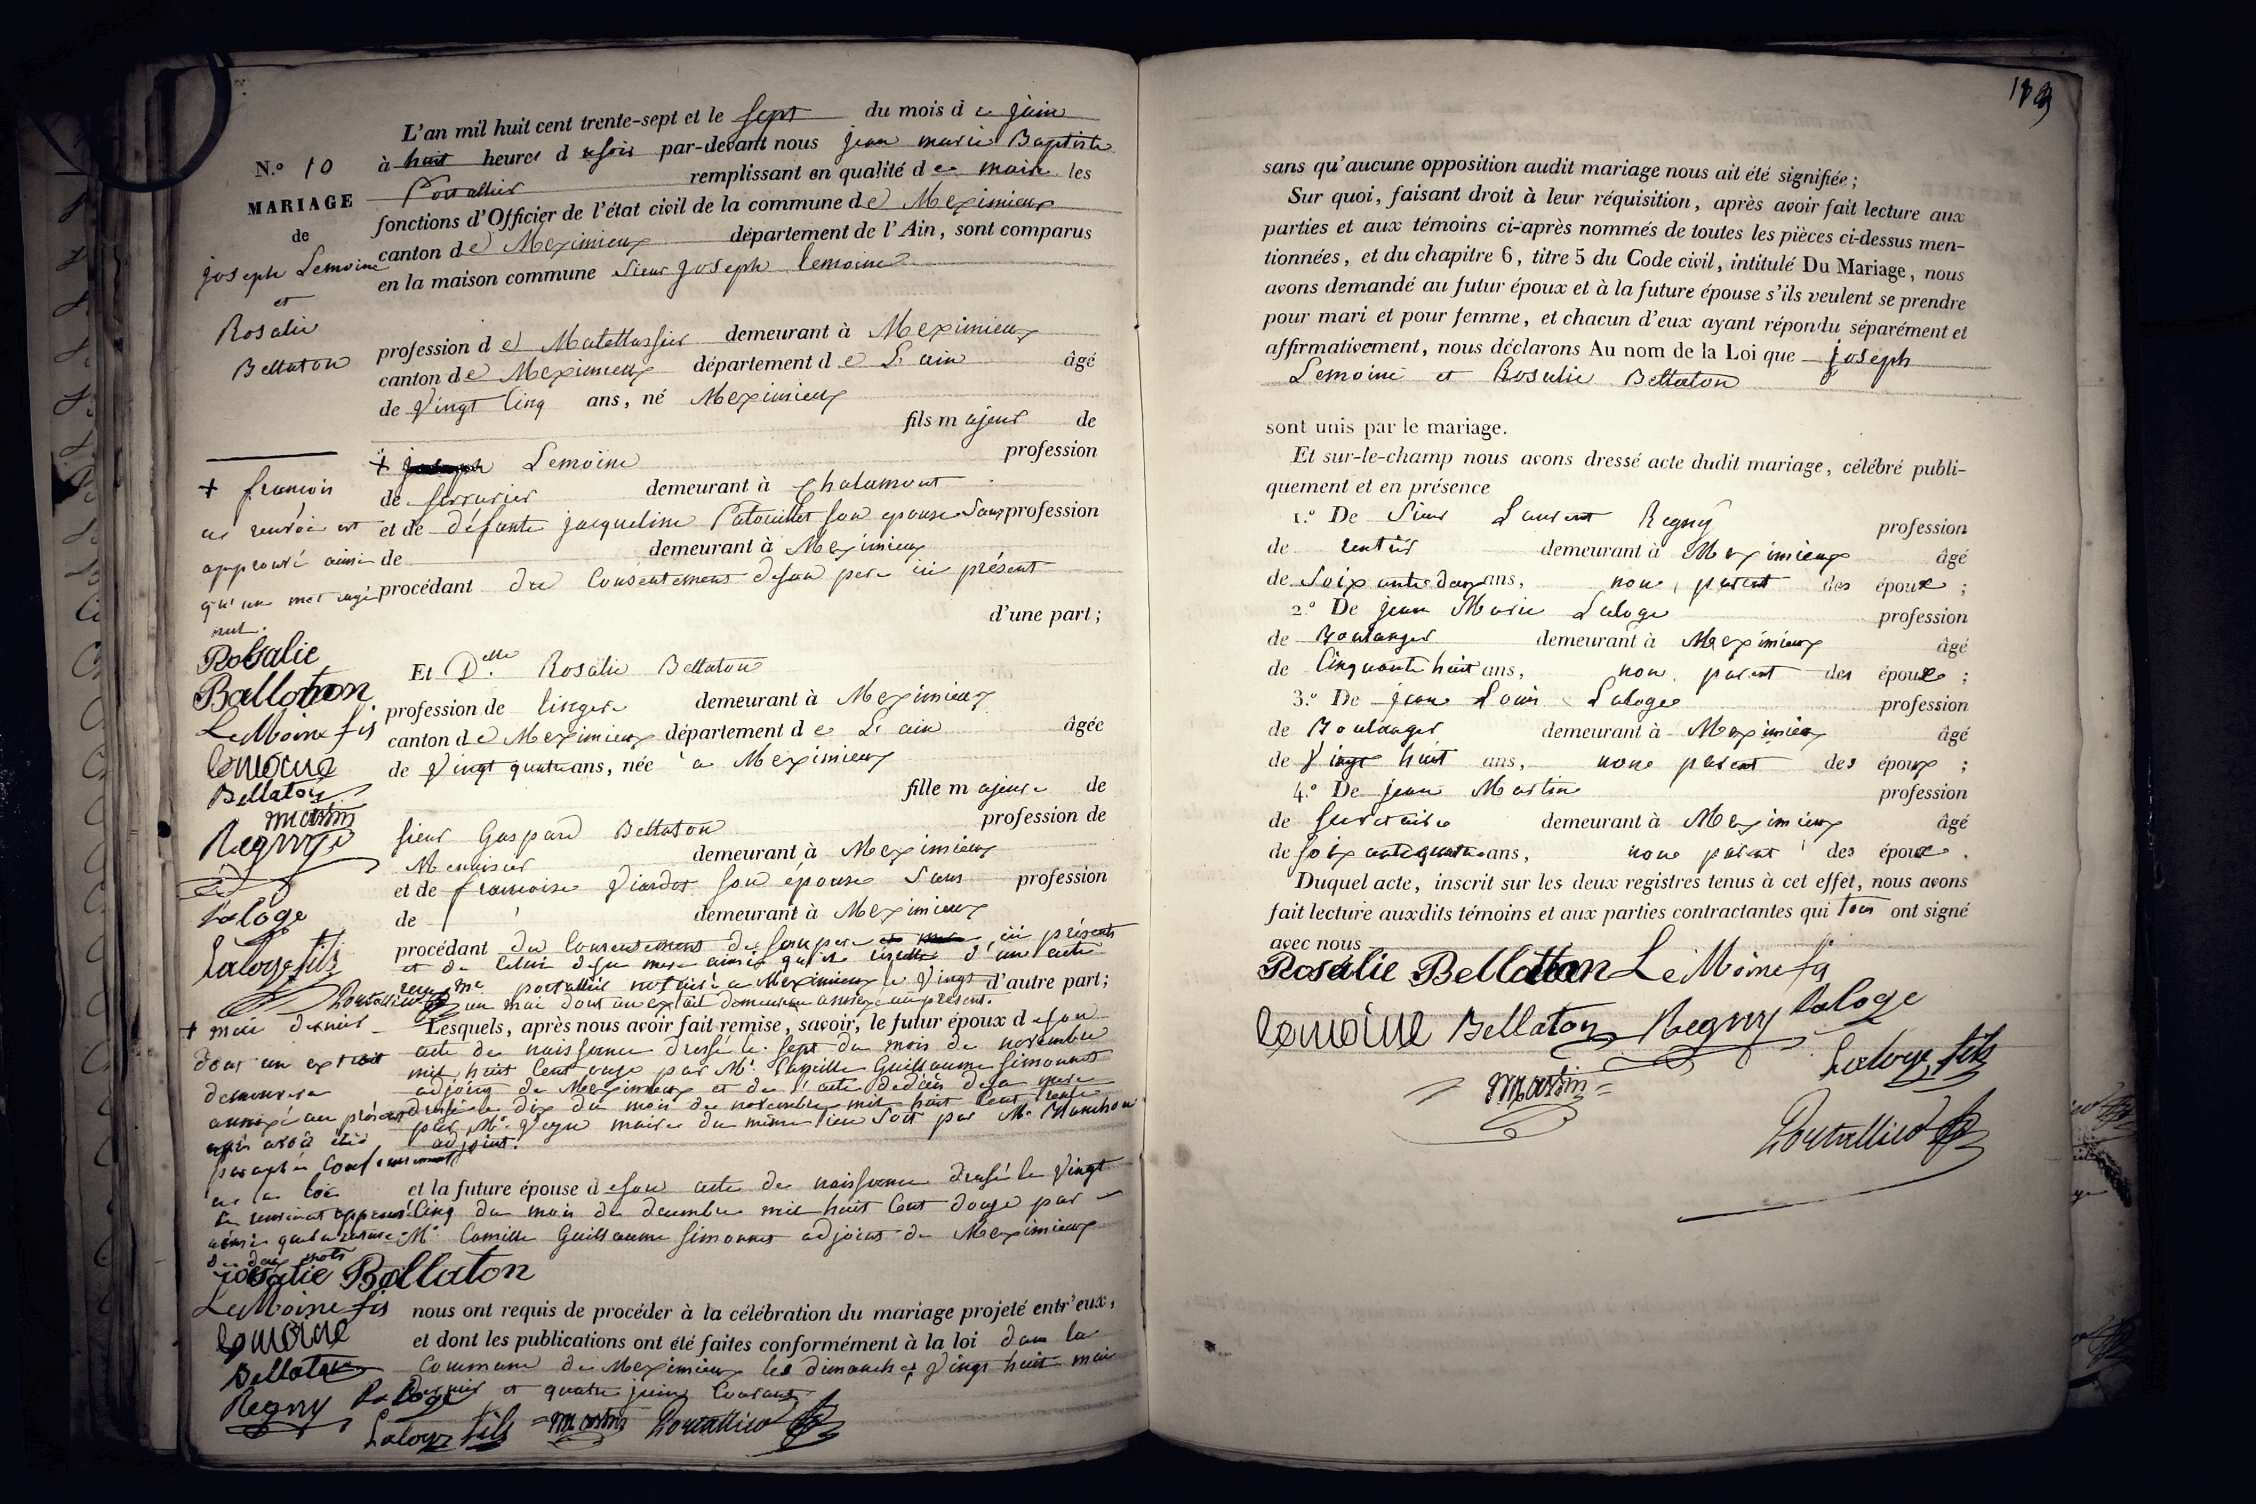 L'an mil huit cent trente-sept et le sept du mois de juin
N.o 10
à huit heures du soir par-devant nous jean marie Baptiste
Portallier remplissant en qualité de maire les
MARIAGE
fonctions d'Officier de l'état civil de la commune de Meximieux
de
canton de Meximieux département de l'Ain, sont comparus
joseph Lemoine
en la maison commune Sieur joseph Lemoine
et
Rosalie
Bellaton
profession de Matellassier demeurant à Meximieux
canton de Meximieux département de L'ain âgé
de vingt cinq ans, né Meximieux
fils majeur de
+ Lemoine profession
+ françois
de serrurier demeurant à Chalamont
ce renvoi est
et de défunte jacqueline Patouillet son epouse Sans profession
approuvé ainsi
de demeurant à Meximieux
qu'un mot rayé
procédant du consentement de son pere ici présent
nul.
d'une part;
Rosalie
Et Delle Rosalie Bellaton
Bellaton
profession de lingere demeurant à Meximieux
LeMoine fis
canton de Meximieux département de L'ain âgée
lemoine
de vingt quatre ans, née à Meximieux
Bellaton
fille majeure de
martin
Regny
sieur Gaspard Bellaton profession de
Menuisier demeurant à Meximieux
et de francoise Viardot son epouse Sans profession
Laloge
de demeurant à Meximieux
Laloge fils
procédant du consentement de son pere ici présent
et de celui de sa mere ainsi qu'il résulte d'un acte
reçu Me portallier notaire à Meximieux le vingt d'autre part;
Portallier
un mai dont un extrait demeurera annexé au présent.
+ mai dernier
Lesquels, après nous avoir fait remise, savoir, le futur époux de son
dont un extrait
acte de naissance dressé le sept du mois de novembre
demeurera
mil huit cent onze par Mr Camille Guillaume Simonnet
annexé au présent
adjoint de Meximieux et de l'acte de décès de sa mere
après avoir été
dressé le dix du mois de novembre mil huit cent trente
paraphé conformément
par Mr maire du même lieu Soit par Mr Blanchon
à la loi
adjoint.
et la future épouse de son acte de naissance dressé le vingt
cinq du mois de decembre mil huit cent douze par
Mr Camille Guillaume Simonnet adjoint de Meximieux
de deux mots
Rosalie Bellaton
LeMoine fis
nous ont requis de procéder à la célébration du mariage projeté entr'eux,
lemoine
et dont les publications ont été faites conformément à la loi dans la
Bellaton
commune de Meximieux les dimanches vingt huit mai
Regny Laloge
dernier et quatre juin courant
Laloge fils martin Portallier
sans qu'aucune opposition audit mariage nous ait été signifiée;
Sur quoi, faisant droit à leur réquisition, après avoir fait lecture aux
parties et aux témoins ci-après nommés de toutes les pièces ci-dessus men-
tionnées, et du chapitre 6, titre 5 du Code civil, intitulé Du Mariage, nous
avons demandé au futur époux et à la future épouse s'ils veulent se prendre
pour mari et pour femme, et chacun d'eux ayant répondu séparément et
affirmativement, nous déclarons Au nom de la Loi que joseph
Lemoine et Rosalie Bellaton
sont unis par le mariage.
Et sur-le-champ nous avons dressé acte dudit mariage, célébré publi-
quement et en présence
1.o De Sieur Laurent Regny profession
de rentier demeurant à Meximieux âgé
de soixante deux ans, non parent des époux;
2.o De jean Marie Laloge profession
de Boulanger demeurant à Meximieux âgé
de cinquante huit ans, non parent des époux;
3.o De jean Louis Laloge profession
de Boulanger demeurant à Meximieux âgé
de vingt huit ans, non parent des époux;
4.o De jean Martin profession
de secretaire demeurant à Meximieux âgé
de soixante quatre ans, non parent des époux.
Duquel acte, inscrit sur les deux registres tenus à cet effet, nous avons
fait lecture auxdits témoins et aux parties contractantes qui tous ont signé
avec nous
Rosalie Bellaton LeMoine fis
lemoine Bellaton Regny laloge
martin Laloge fils
Portallier